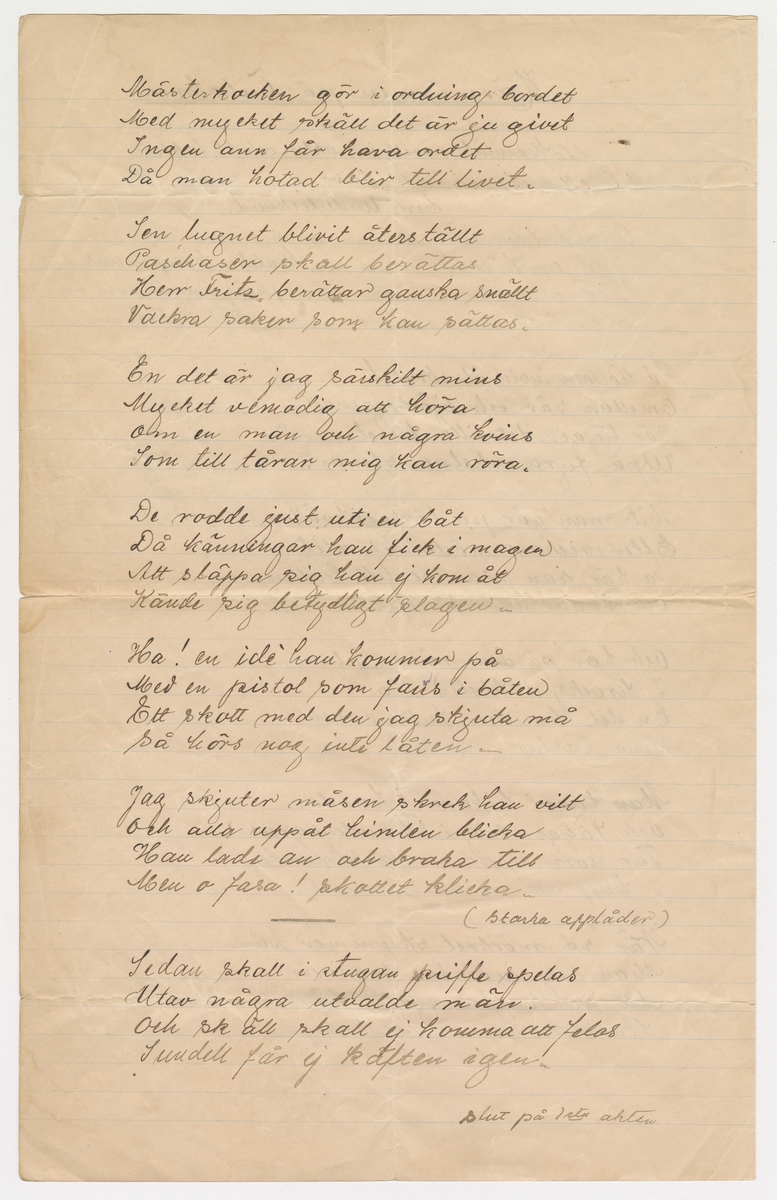 Mästerkocken gör i ordning bordet
Med mycket skäll det är ju givet
Ingen ann får hava ordet
Då man hotad blir till livet.
Sen lugnet blivit återställt
Paschaser skall berättas
Herr Fritz berättar ganska snällt
Vackra saker som kan sättas.
En det är jag särskilt mins
Mycket vemodig att höra
Om en man och några kvins
Som till tårar mig kan röra.
De rodde just uti en båt
Då känningar han fick i magen
Att släppa sig han ej kom åt
Kände sig betydligt slagen
Ha! en idé han kommer på
Med en pistol som fans i båten
Ett skott med den jag skjuta må
Så hörs nog inte låten
Jag skjuter måsen skrek han vilt
Och alla uppåt himlen blicka
Han lade an och braka till
Men o fasa! skottet klicka
(Starka applåder)
Sedan skall i stugan priffe spelas
Utav några utvalde män.
Och skäll skall ej komma att felas
Sundell får ej käften igen
slut på 1sta akten